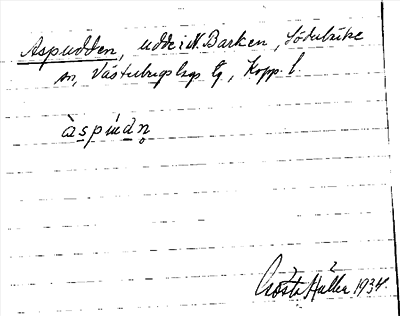 Aspudden, udde i N. Barken, Söderbärke
sn, Västerbergslags tg, Kopp. l.
àspúdn̥
Gösta Hallen 1934.